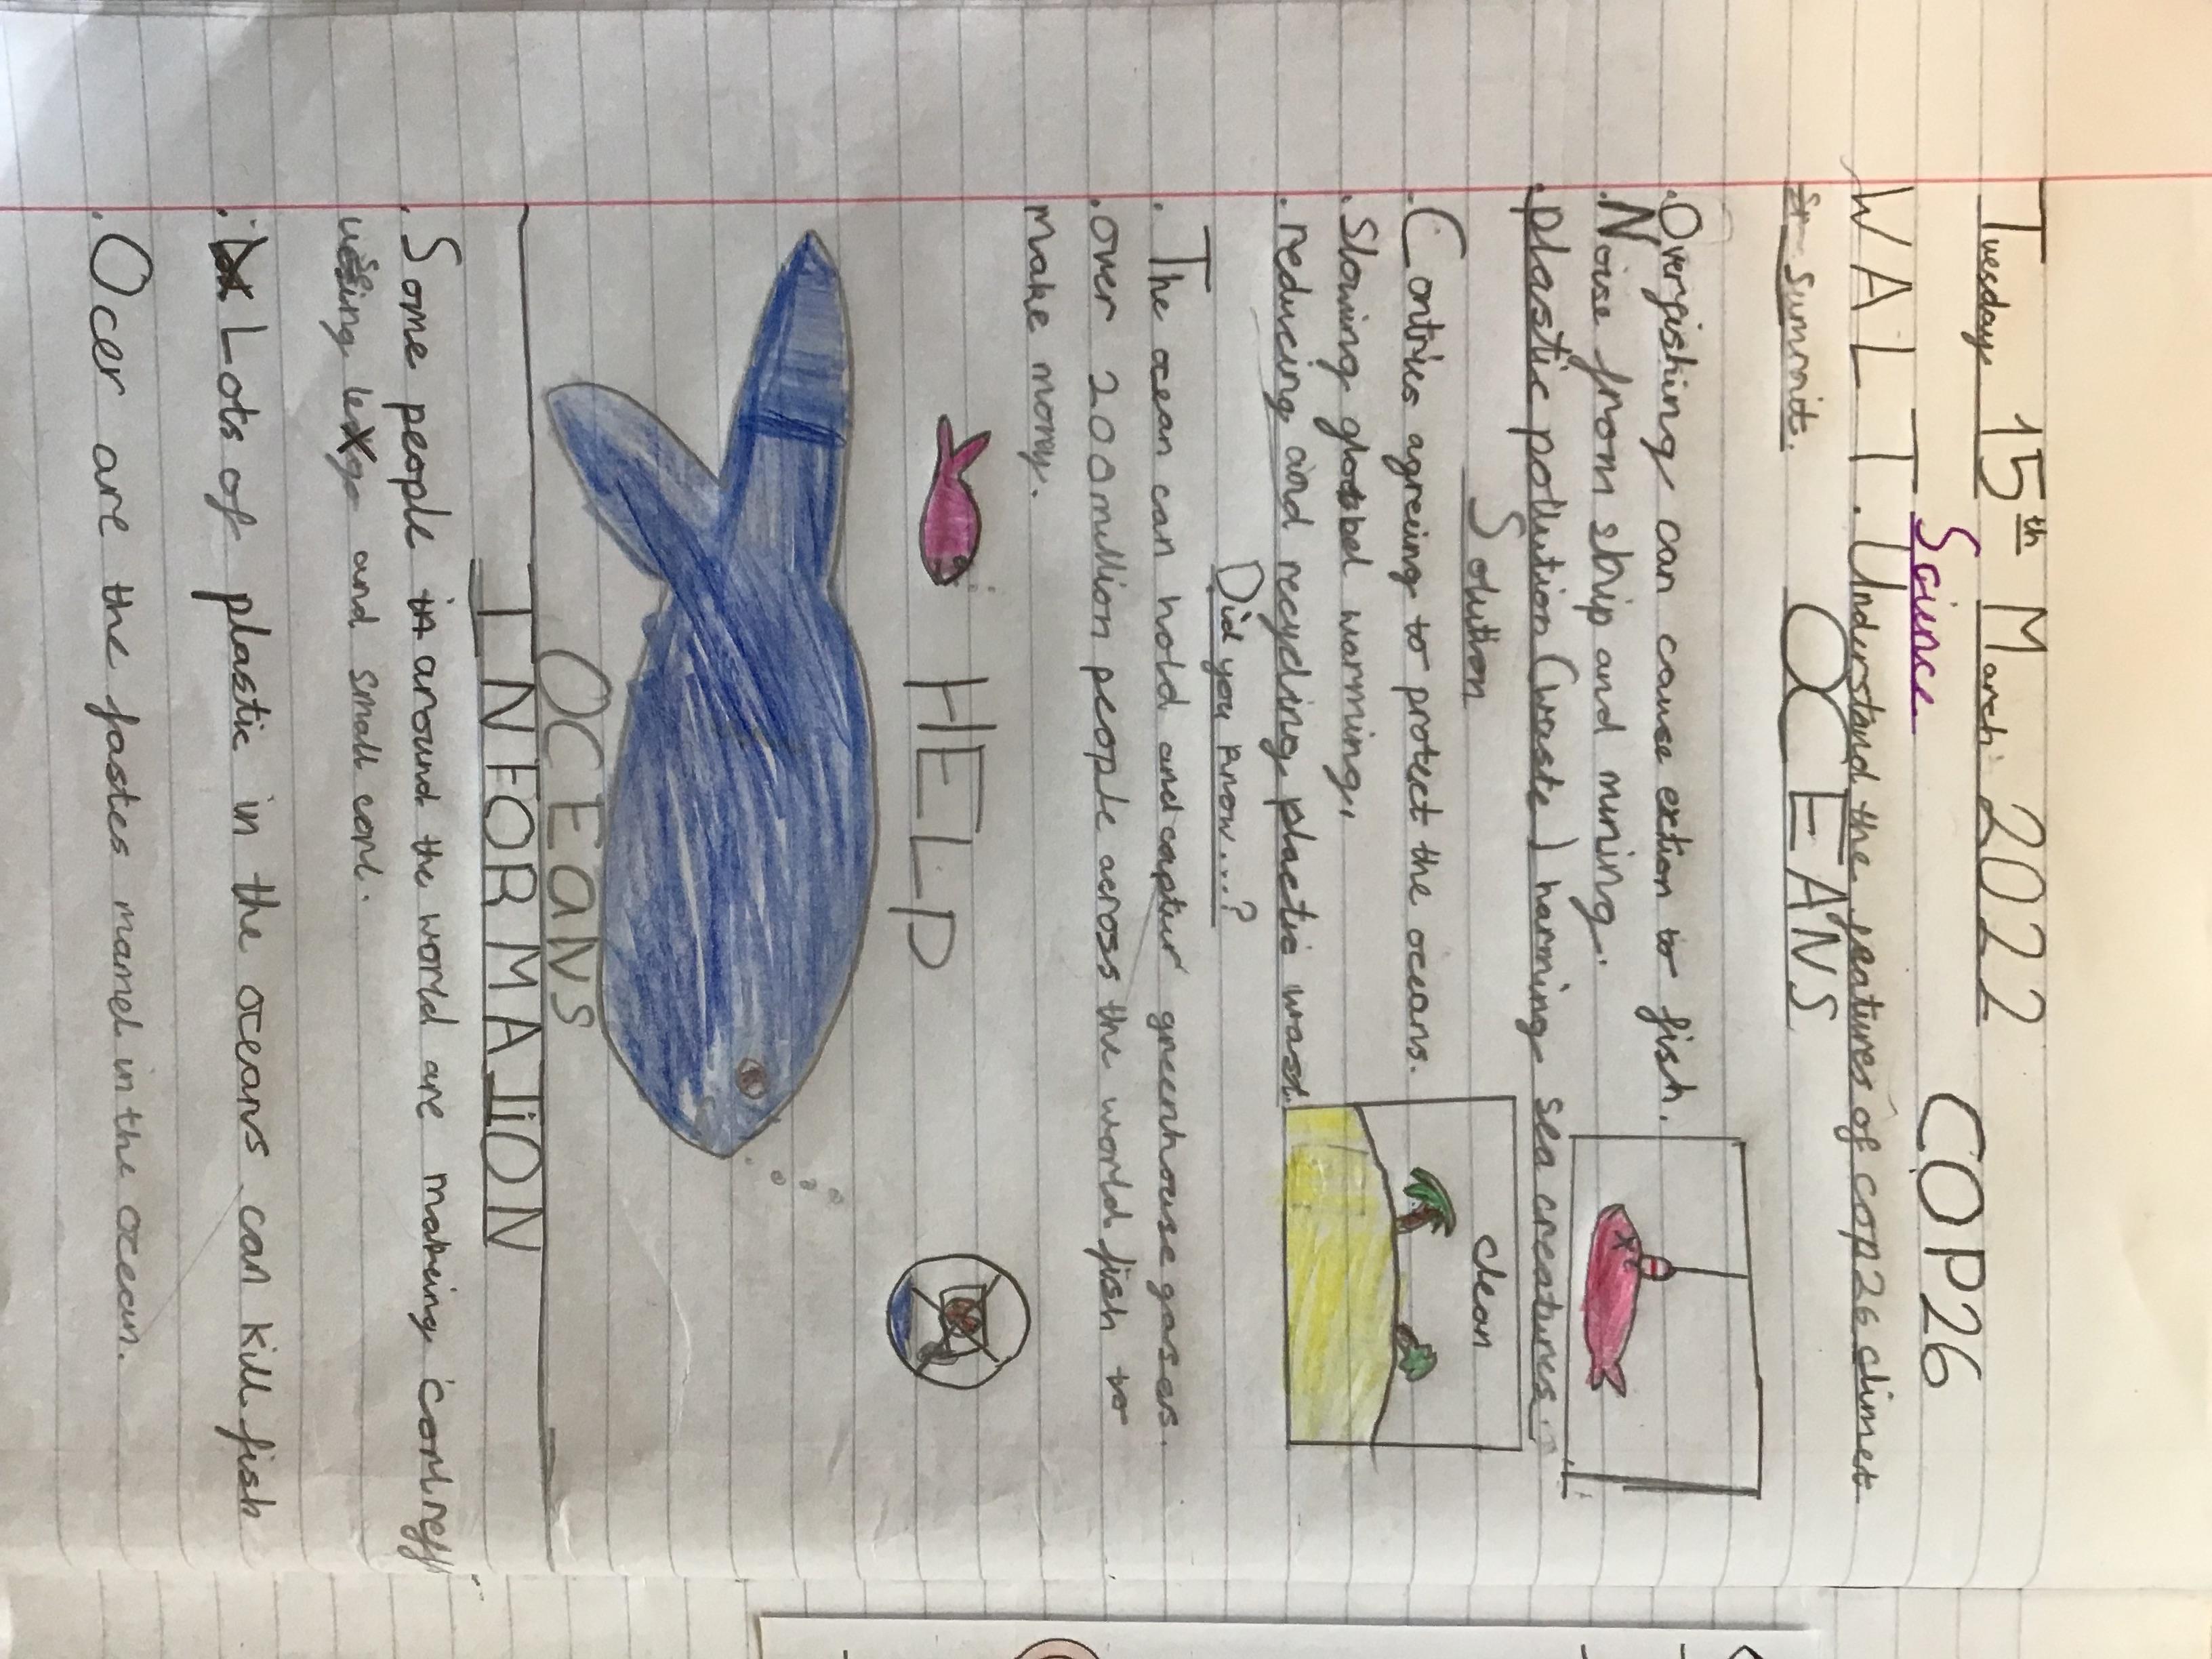 Tuesday 15th March 2022
Science COP26
WALT. Understand the features of cop26 climet
summit.
OCEANS
.Overfishing can cause extion to fish.
.Noise from ship and mining.
.plastic pollution (waste) harming sea creatures.
Solution
.Contries agreing to protect the oceans.
clean
.Slowing glo bel warming,
.reducing and recycling plactic wast.
Did you know...?
.The ocean can hold and captur greenhouse gasses.
.over 200million people across the world fish to
make money.
HELP
OCEaNS
INFORMATiON
.Some people around the world are makeing corl reff
useing lego and small corl.
.Lots of plastic in the oceans can kill fish
.Ocer are the fastes mamel in the ocean.